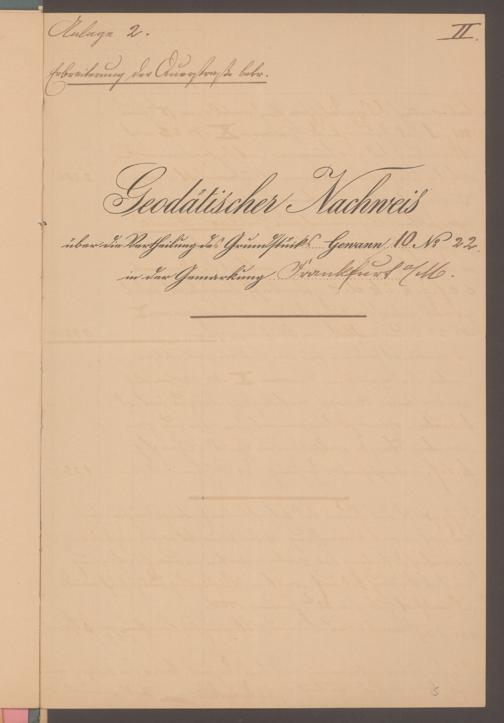 Anlage 2.
II.
Erbreiterung der Querstraße betr.
Geodätischer Nachweis
über die Vertheilung des Grundstücks Gewann 10 No 22.
in der Gemarkung Frankfurt a/M.
5